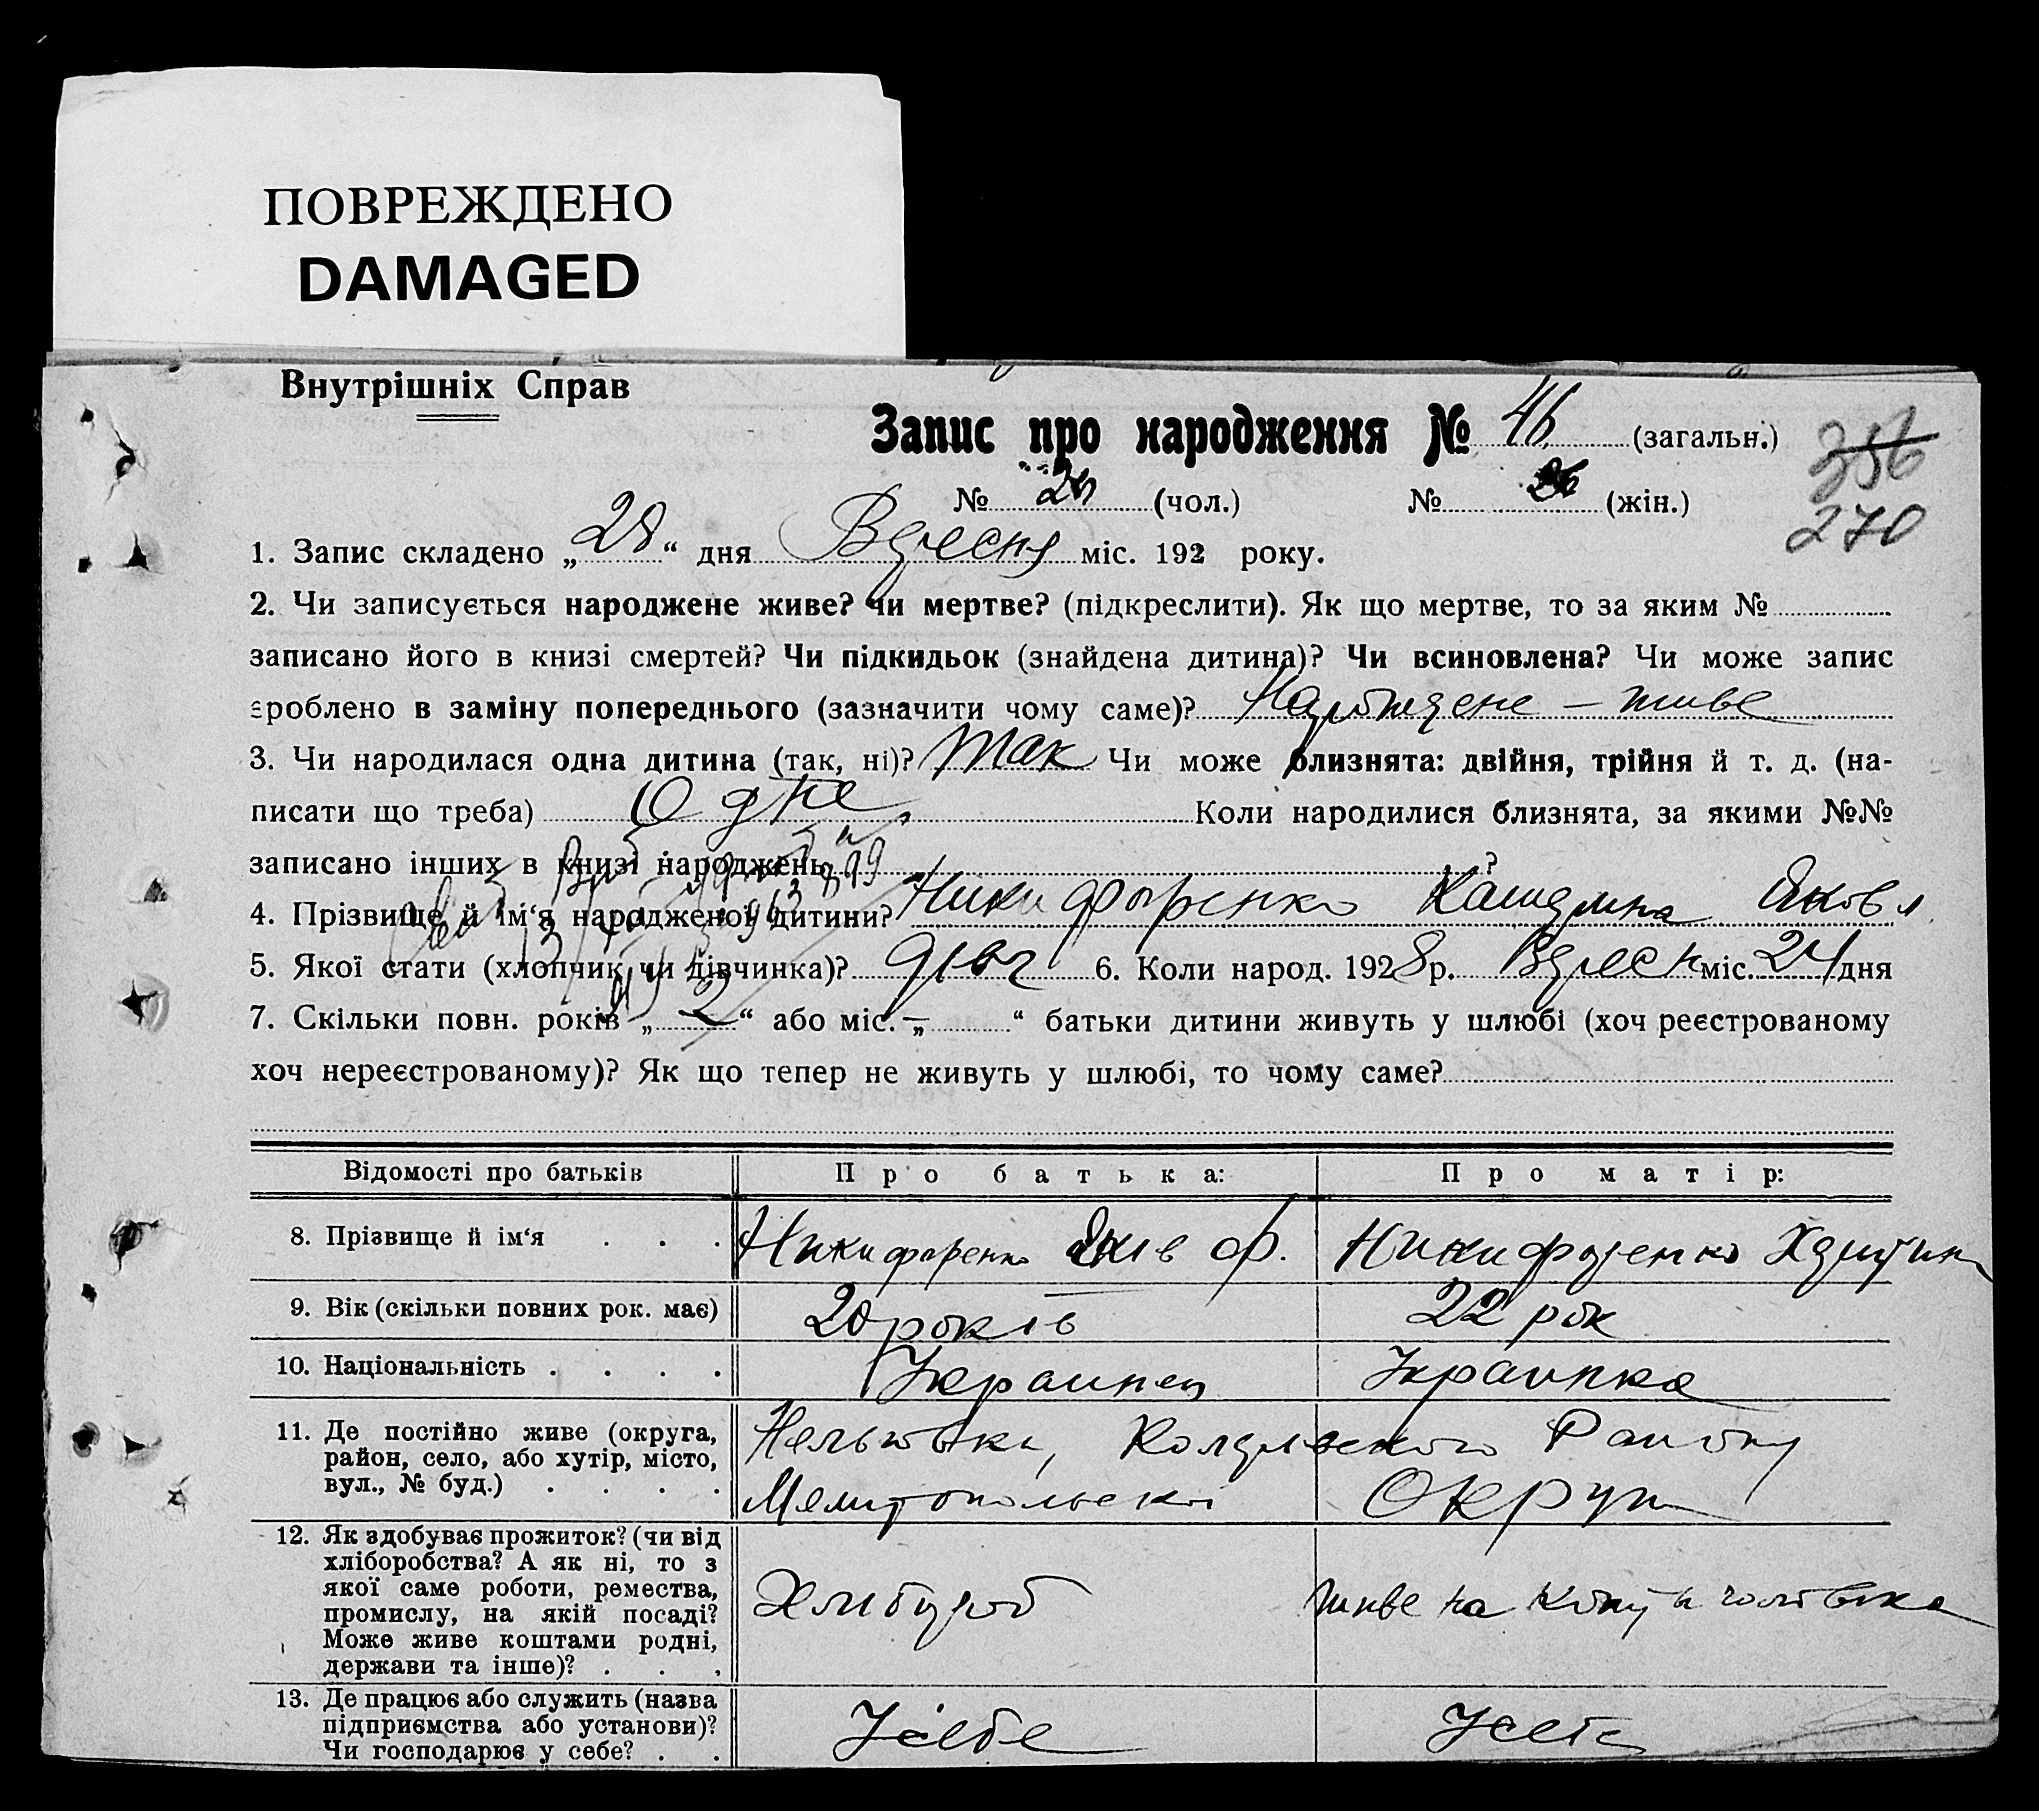 ПОВРЕЖДЕНО
DAMAGED
Внутрішніх Справ
Запис про народження № 46 (загальн.)
356
№ (чол.) № 26 (жін.)
270
1. Запис складено „28“ дня Вересня міс. 192 року.
2. Чи записується народжене живе? чи мертве? (підкреслити). Як що мертве, то за яким №
записано його в книзі смертей? Чи підкидьок (знайдена дитина)? Чи всиновлена? Чи може запис
зроблено в заміну попереднього (зазначити чому саме)? Народжене – живе
3. Чи народилася одна дитина (так, ні)? Так Чи може близнята: двійня, трійня й т. д. (на-
писати що треба) Одне Коли народилися близнята, за якими №№
записано інших в книзі народжень ?
4. Прізвище й ім‘я народженої дитини? Никифоренко Яковл
5. Якої стати (хлопчик чи дівчинка)? дівч 6. Коли народ. 1928 р. Вересн міс. 24 дня
7. Скільки повн. років „2“ або міс. „—“ батьки дитини живуть у шлюбі (хоч реєстрованому
хоч нереєстрованому)? Як що тепер не живуть у шлюбі, то чому саме?
Відомості про батьків Про батька: Про матір:
8. Прізвище й ім‘я . . . Никифоренко Яків Ф. Никифоренко
9. Вік (скільки повних рок. має) 20 років 22 рок
10. Національність . . . . Украинец Украинка
11. Де постійно живе (округа,
район, село, або хутір, місто,
вул., № буд.) . . . .
Району
Мелитопольскоі Округи
12. Як здобуває прожиток? (чи від
хліборобства? А як ні, то з
якої саме роботи, ремества,
промислу, на якій посаді?
Може живе коштами родні,
держави та інше)? . . .
Хлибороб живе на чоловика
13. Де працює або служить (назва
підприємства або установи)?
Чи господарює у себе? . .
Усебе Усебе